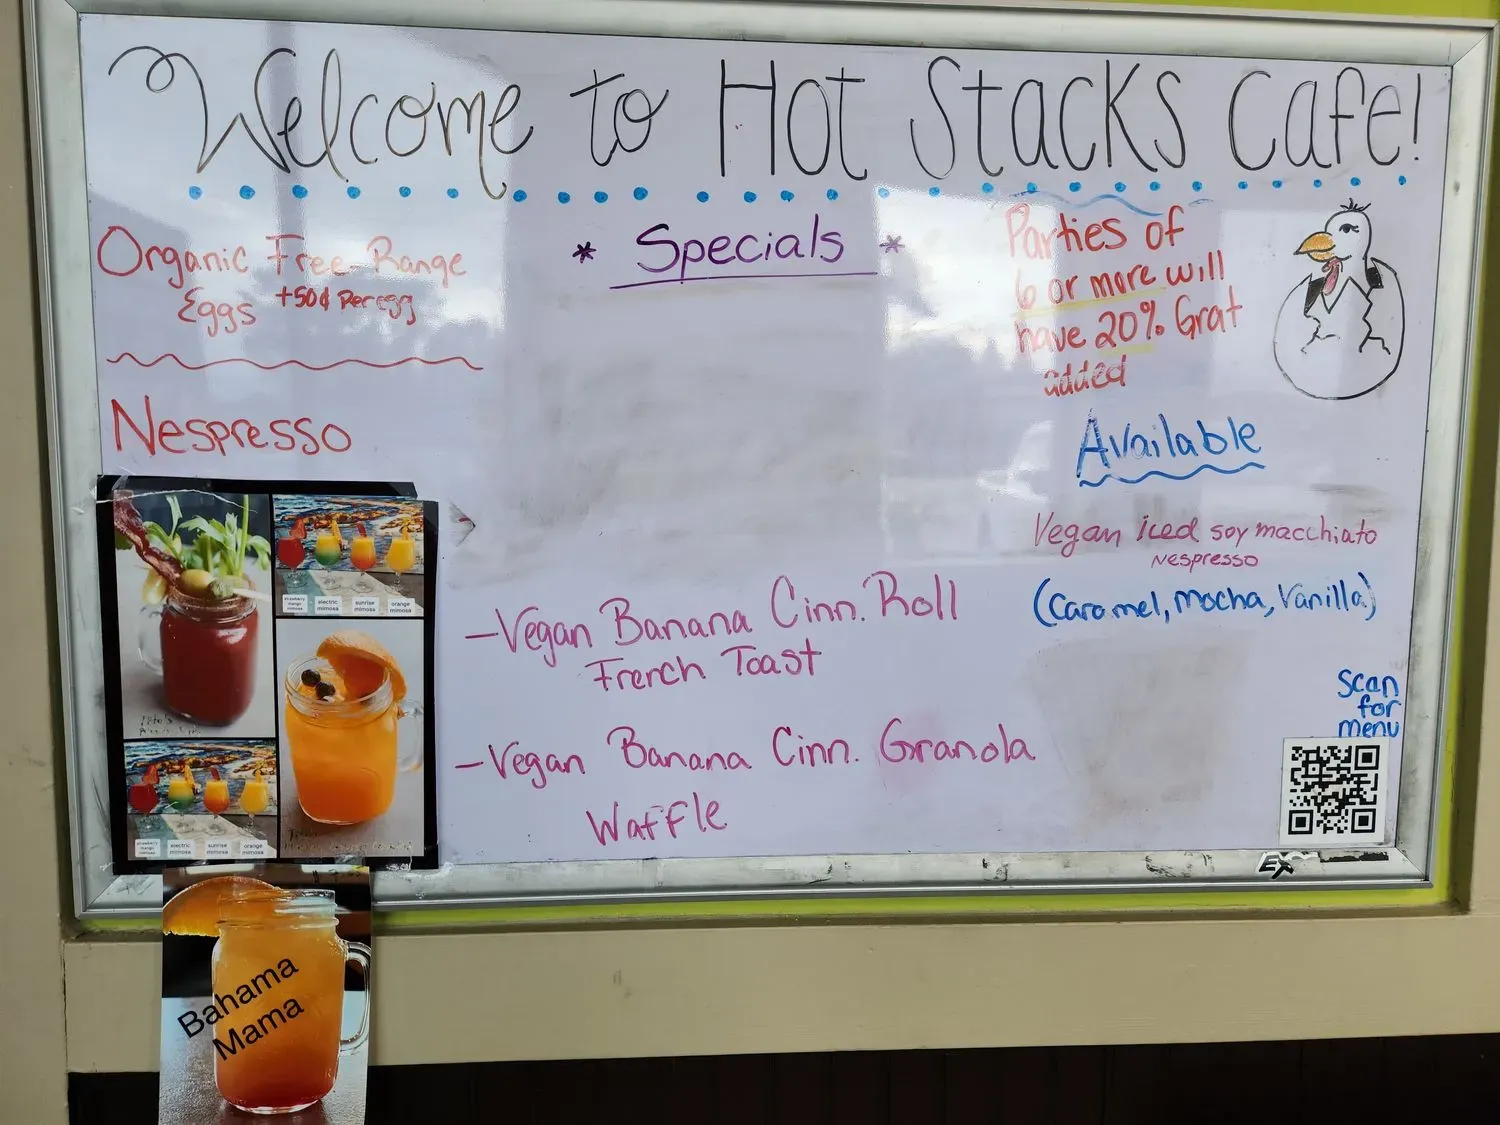 Welcome to Hot Stacks Cafe!
Organic Free-Range
Eggs +50¢ Per egg
Nespresso
* Specials *
-Vegan Banana Cinn. Roll
French Toast
-Vegan Banana Cinn. Granola
Waffle
Parties of
6 or more will
have 20% Grat
added
Available
Vegan iced soy macchiato
Nespresso
(Caramel, Mocha, Vanilla)
Scan
for
menu
strawberry mango mimosa
electric mimosa
sunrise mimosa
orange mimosa
strawberry mango mimosa
electric mimosa
sunrise mimosa
orange mimosa
Bahama
Mama